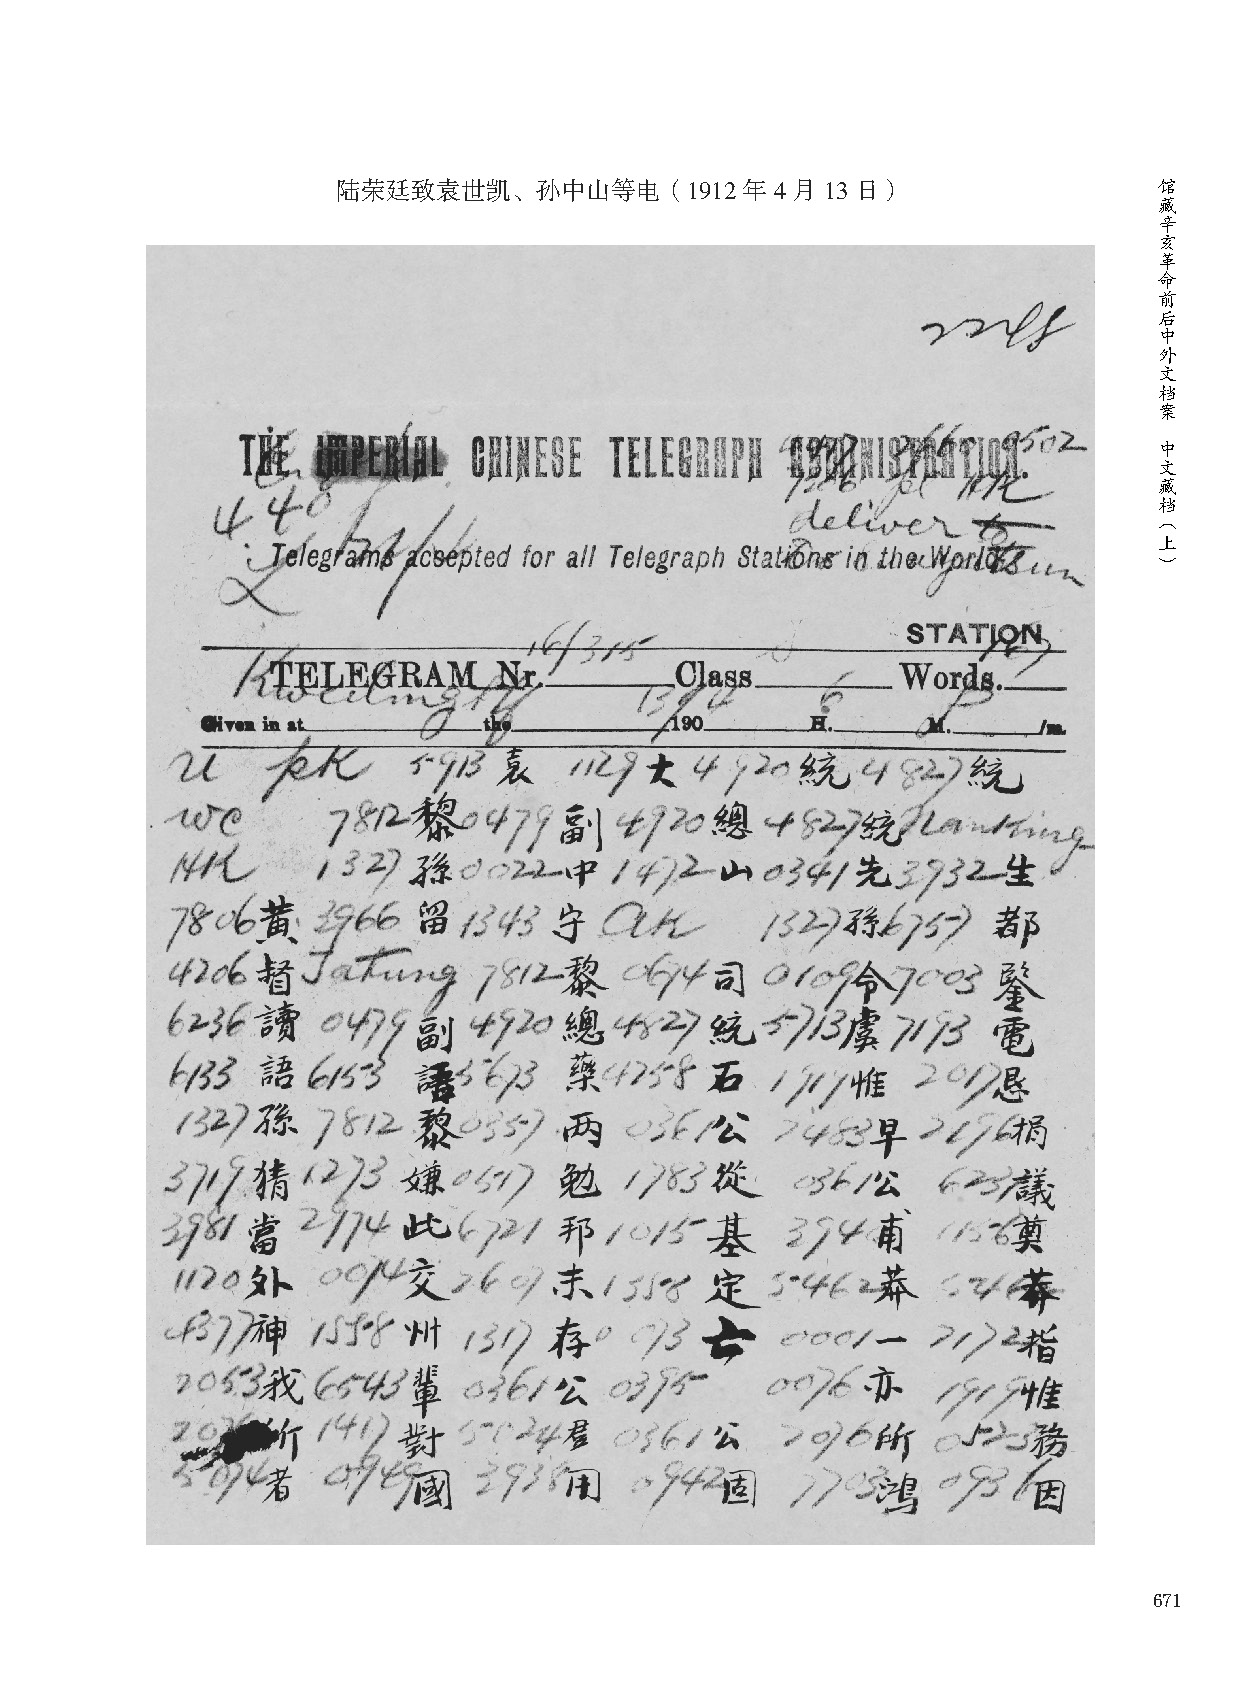 陆荣廷致袁世凯、孙中山等电（1912年4月13日）
馆藏辛亥革命前后中外文档案 中文藏档（上）
THE IMPERIAL CHINESE TELEGRAPH ADMINISTRATION.
440
deliver to
Telegrams accepted for all Telegraph Stations in the World.
STATION
TELEGRAM Nr. Class Words.
Given in at the 190 H. M. /m.
PK 5913 袁 1129 大 4920 統 4827 統
WC 7812 黎 0479 副 4920 總 4827 統 Nanking
HK 1327 孫 0022 中 1472 山 0341 先 3932 生
7806 黃 3966 留 1343 守 1327 孫 6757 都
4206 督 Tatung 7812 黎 0674 司 0109 令 7003 鑒
6236 讀 0479 副 4920 總 4827 統 5713 虞 7193 電
6133 語 6153 5673 藥 4258 石 1919 惟 2017 恳
1327 孫 7812 黎 0357 两 0361 公 2483 早 2196 捐
3719 猜 1273 嫌 0517 勉 1783 從 0361 公 6231 議
3981 當 2974 此 6721 邦 1015 基 394 甫 1156 奠
1120 外 0074 交 2607 未 1558 定 5462 莽 莽
4377 神 1558 州 1317 存 073 亡 0001 一 2172 指
2053 我 6543 輩 0361 公 0395 0076 亦 1919 惟
1417 對 君 0361 公 2076 所 0523 務
5074 者 0949 國 3938 用 0942 固 7703 鴻 0936 因
671